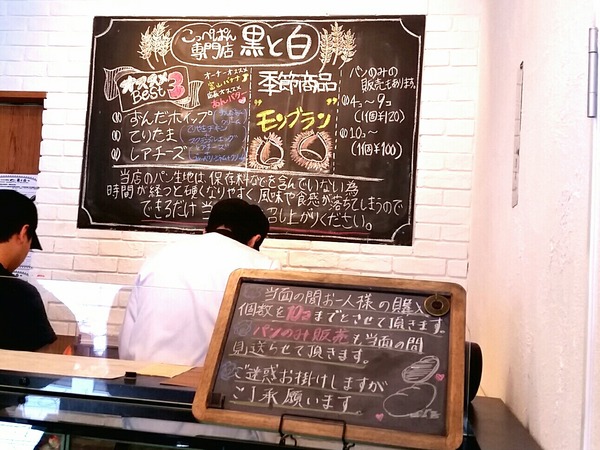 こっぺぱん
専門店
黒と白
オススメ
Best 3
① あんだホイップ
② てりたま
③ レアチーズ
オーナーオススメ
あんバター
季節商品
モンブラン
パンのみの
販売もあります。
4コ～9コ
(1個¥120)
10コ～
(1個¥100)
当店のパン生地は、保存料などを含んでいない為
時間が経つと硬くなりやすく風味や食感が落ちてしまうので
できるだけ当
召し上がりください。
当面の間お一人様の購入
個数を10コまでとさせて頂きます。
パンのみ販売も当面の間
見送らせて頂きます。
ご迷惑お掛けしますが
ご了承願います。